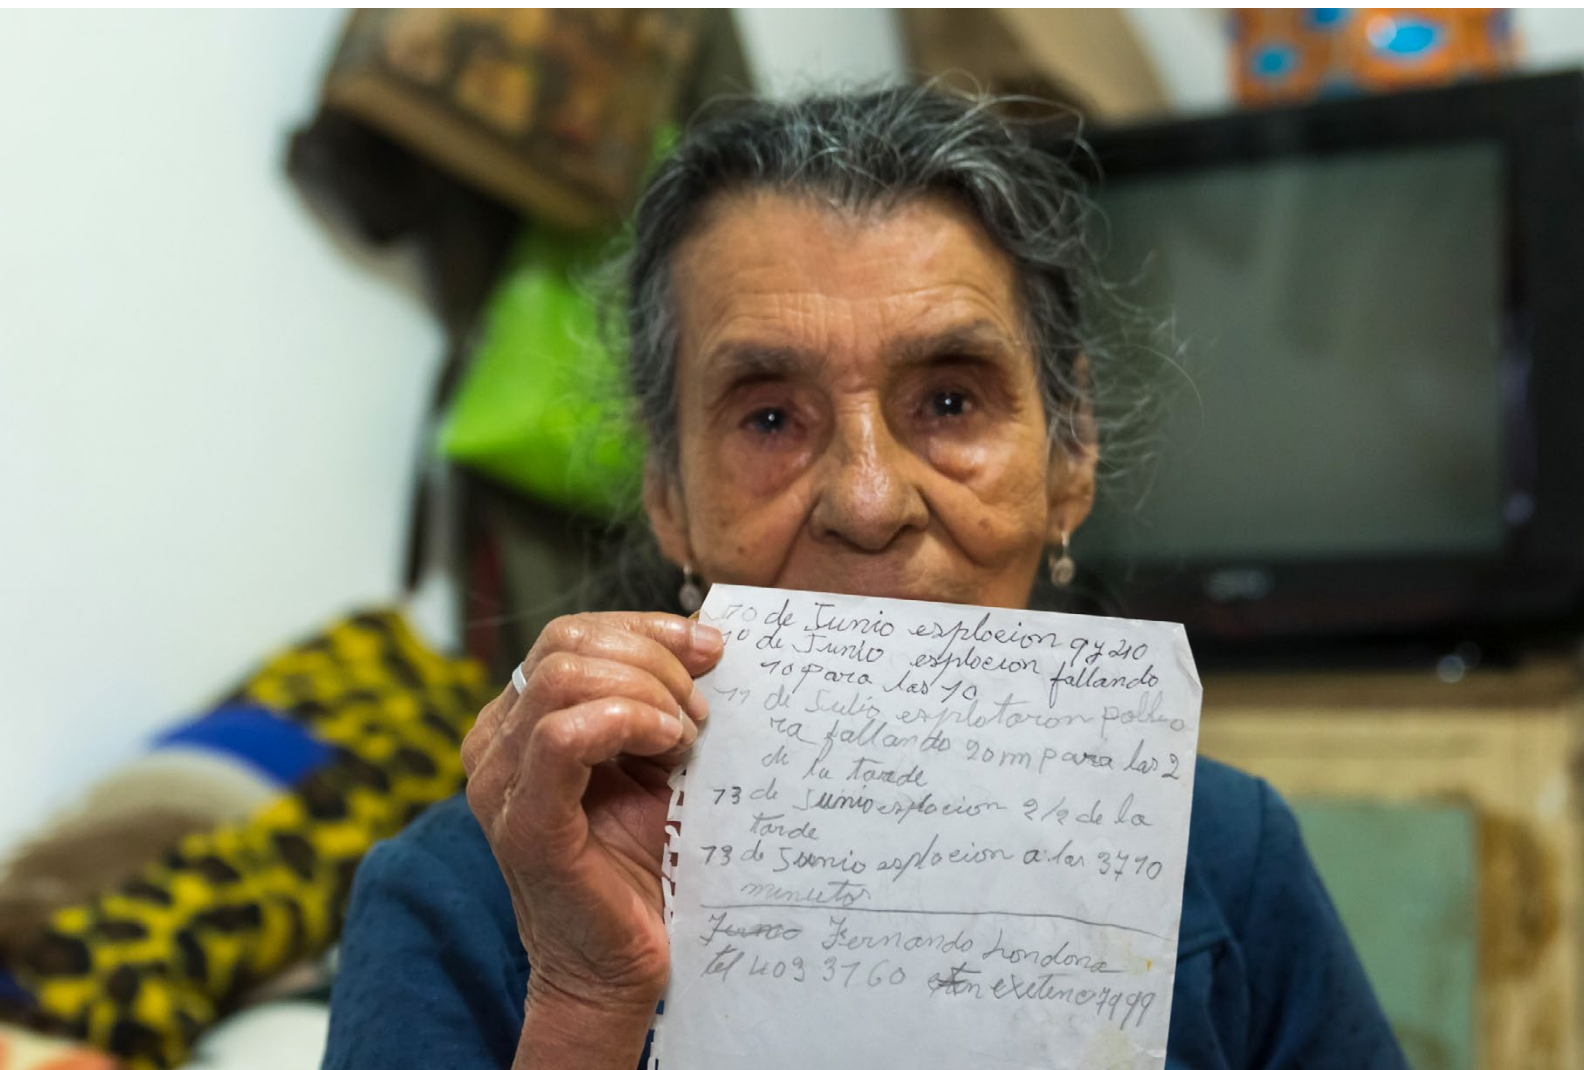 10 de Junio esplocion 9 y 20
10 de Junio esplocion fallando
10 para las 10
11 de Julio esplotaron
ra fallando 20 m para las 2
de la tarde
13 de Junio esplocion 2 1/2 de la
tarde
13 de Junio esplocion a las 3 y 10
minutos
Fernando Londona
tel 409 3160